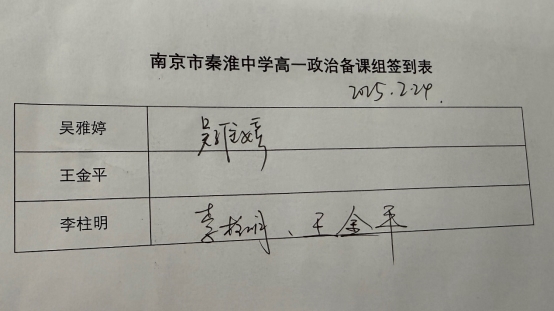 南京市秦淮中学高一政治备课组签到表
2025.2.24.
吴雅婷 吴雅婷
王金平
李柱明 李柱明、王金平